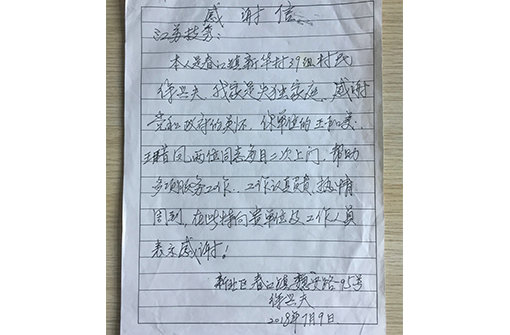 感谢信
江苏技秀：
本人是春江镇新华村39组村民
徐兴夫 我家是失独家庭，感谢
党和政府的关怀，你单位的王和美、
王青凤，两位同志每月二次上门，帮助
多项服务工作，工作认真负责，热情
周到，在此特向贵单位及工作人员
表示感谢！
新北区春江镇魏安路95号
徐兴夫
2018年7月9日